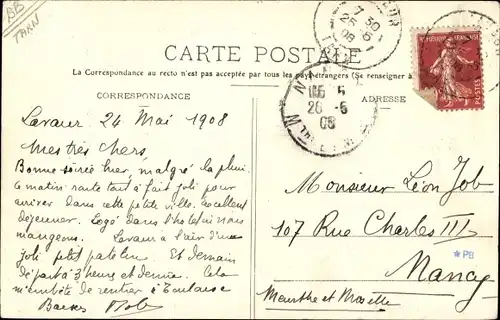 BB
TARN
CARTE POSTALE
La Correspondance au recto n'est pas acceptée par tous les pays étrangers (Se renseigner à
CORRESPONDANCE
ADRESSE
Lavaur 24 Mai 1908
Mes très chers,
Bonne soirée hier, malgré la pluie.
Ce matin route tout à fait joli pour
arriver dans cette petite ville. Excellent
déjeuner. Logé dans l'hôtel où nous
mangeons. Lavaur a l'air d'un
joli petit patelin. Et demain
départ à 3 heures et demie. Cela
m'embête de rentrer à Toulouse
Baisers
Monsieur Léon Job
107 Rue Charles III
Nancy
Meurthe et Moselle
*PB
7 30
25 - 5
08
26 - 5
08
POSTES